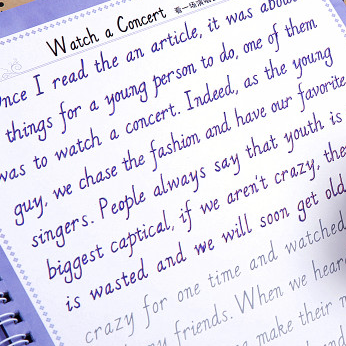 Watch a Concert 看一场演唱
Once I read the an article, it was about
things for a young person to do, one of them
was to watch a concert. Indeed, as the young
guy, we chase the fashion and have our favorite
singers. People always say that youth is
biggest captical, if we aren't crazy, the
is wasted and we will soon get old
crazy for one time and watched
my friends. When we hear
make their